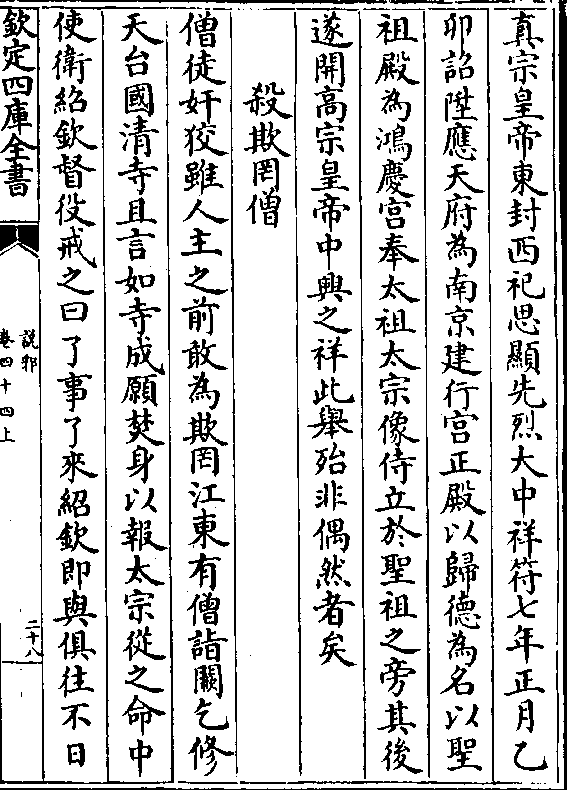 真宗皇帝東封西祀思顯先烈大中祥符七年正月乙
卯詔陞應天府為南京建行宫正殿以歸德為名以聖
祖殿為鴻慶宫奉太祖太宗像侍立於聖祖之旁其後
遂開高宗皇帝中興之祥此舉殆非偶然者矣
殺欺罔僧
僧徒奸狡雖人主之前敢為欺罔江東有僧詣闕乞修
天台國清寺且言如寺成願焚身以報太宗從之命中
使衛紹欽督役戒之曰了事了來紹欽即與俱往不日
欽定四庫全書
說郛
卷四十四上
二十八